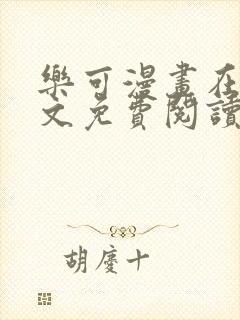 樂可漫畫在
文免費閱讀
胡慶十